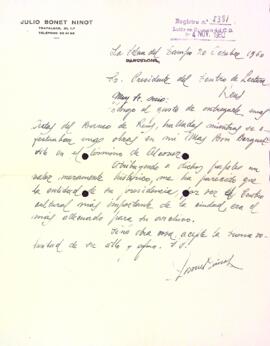 JULIO BONET NINOT
TRAFALGAR, 31, 1.º
TELÉFONO
Registro n.º 2381
4 NOV. 1960
La Plana del 20 Octubre 1960
BARCELONA
Sr. Presidente del Centro de Lectura
Reus
Muy Sr. mio:
Tengo el gusto de entregarle unas
Actas del Banco de Reus, halladas mientras se
efectuaban unas obras en mi Mas Bon
sito en el término de Alcover
Atribuyendo a dichos papeles un
valor meramente histórico, me ha parecido que
la entidad de su presidencia por ser el Centro
cultural más importante de la ciudad, era el
más adecuado para su archivo.
Sin otra cosa, acepte la buena vo-
luntad de su atto y afmo. s.s.